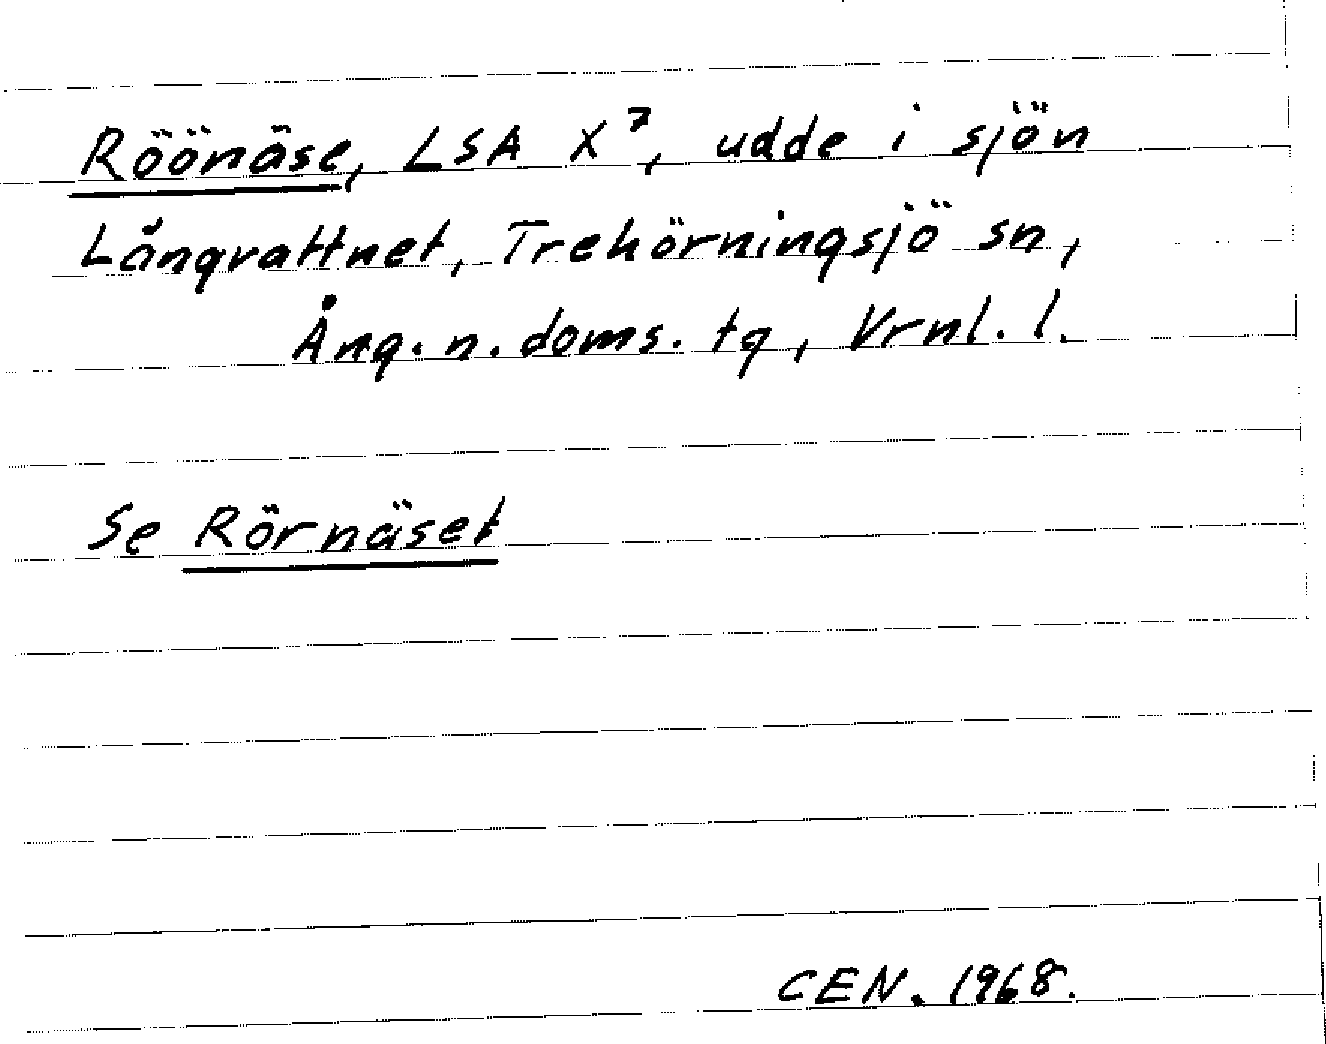 Röönäse, LSA X⁷, udde i sjön
Långvattnet, Trehörningsjö sn,
Ång. n. doms. tg, Vrnl. l.
Se Rörnäset
CEN. 1968.